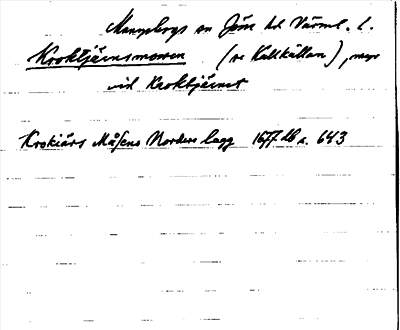 Mangskogs sn Jösse hd Värml. l.
Kroktjärnsmossen (se Kallkällan), mosse
vid Kroktjärnet
Krokiärs Måsens Nordens lagg 1677 db s. 643